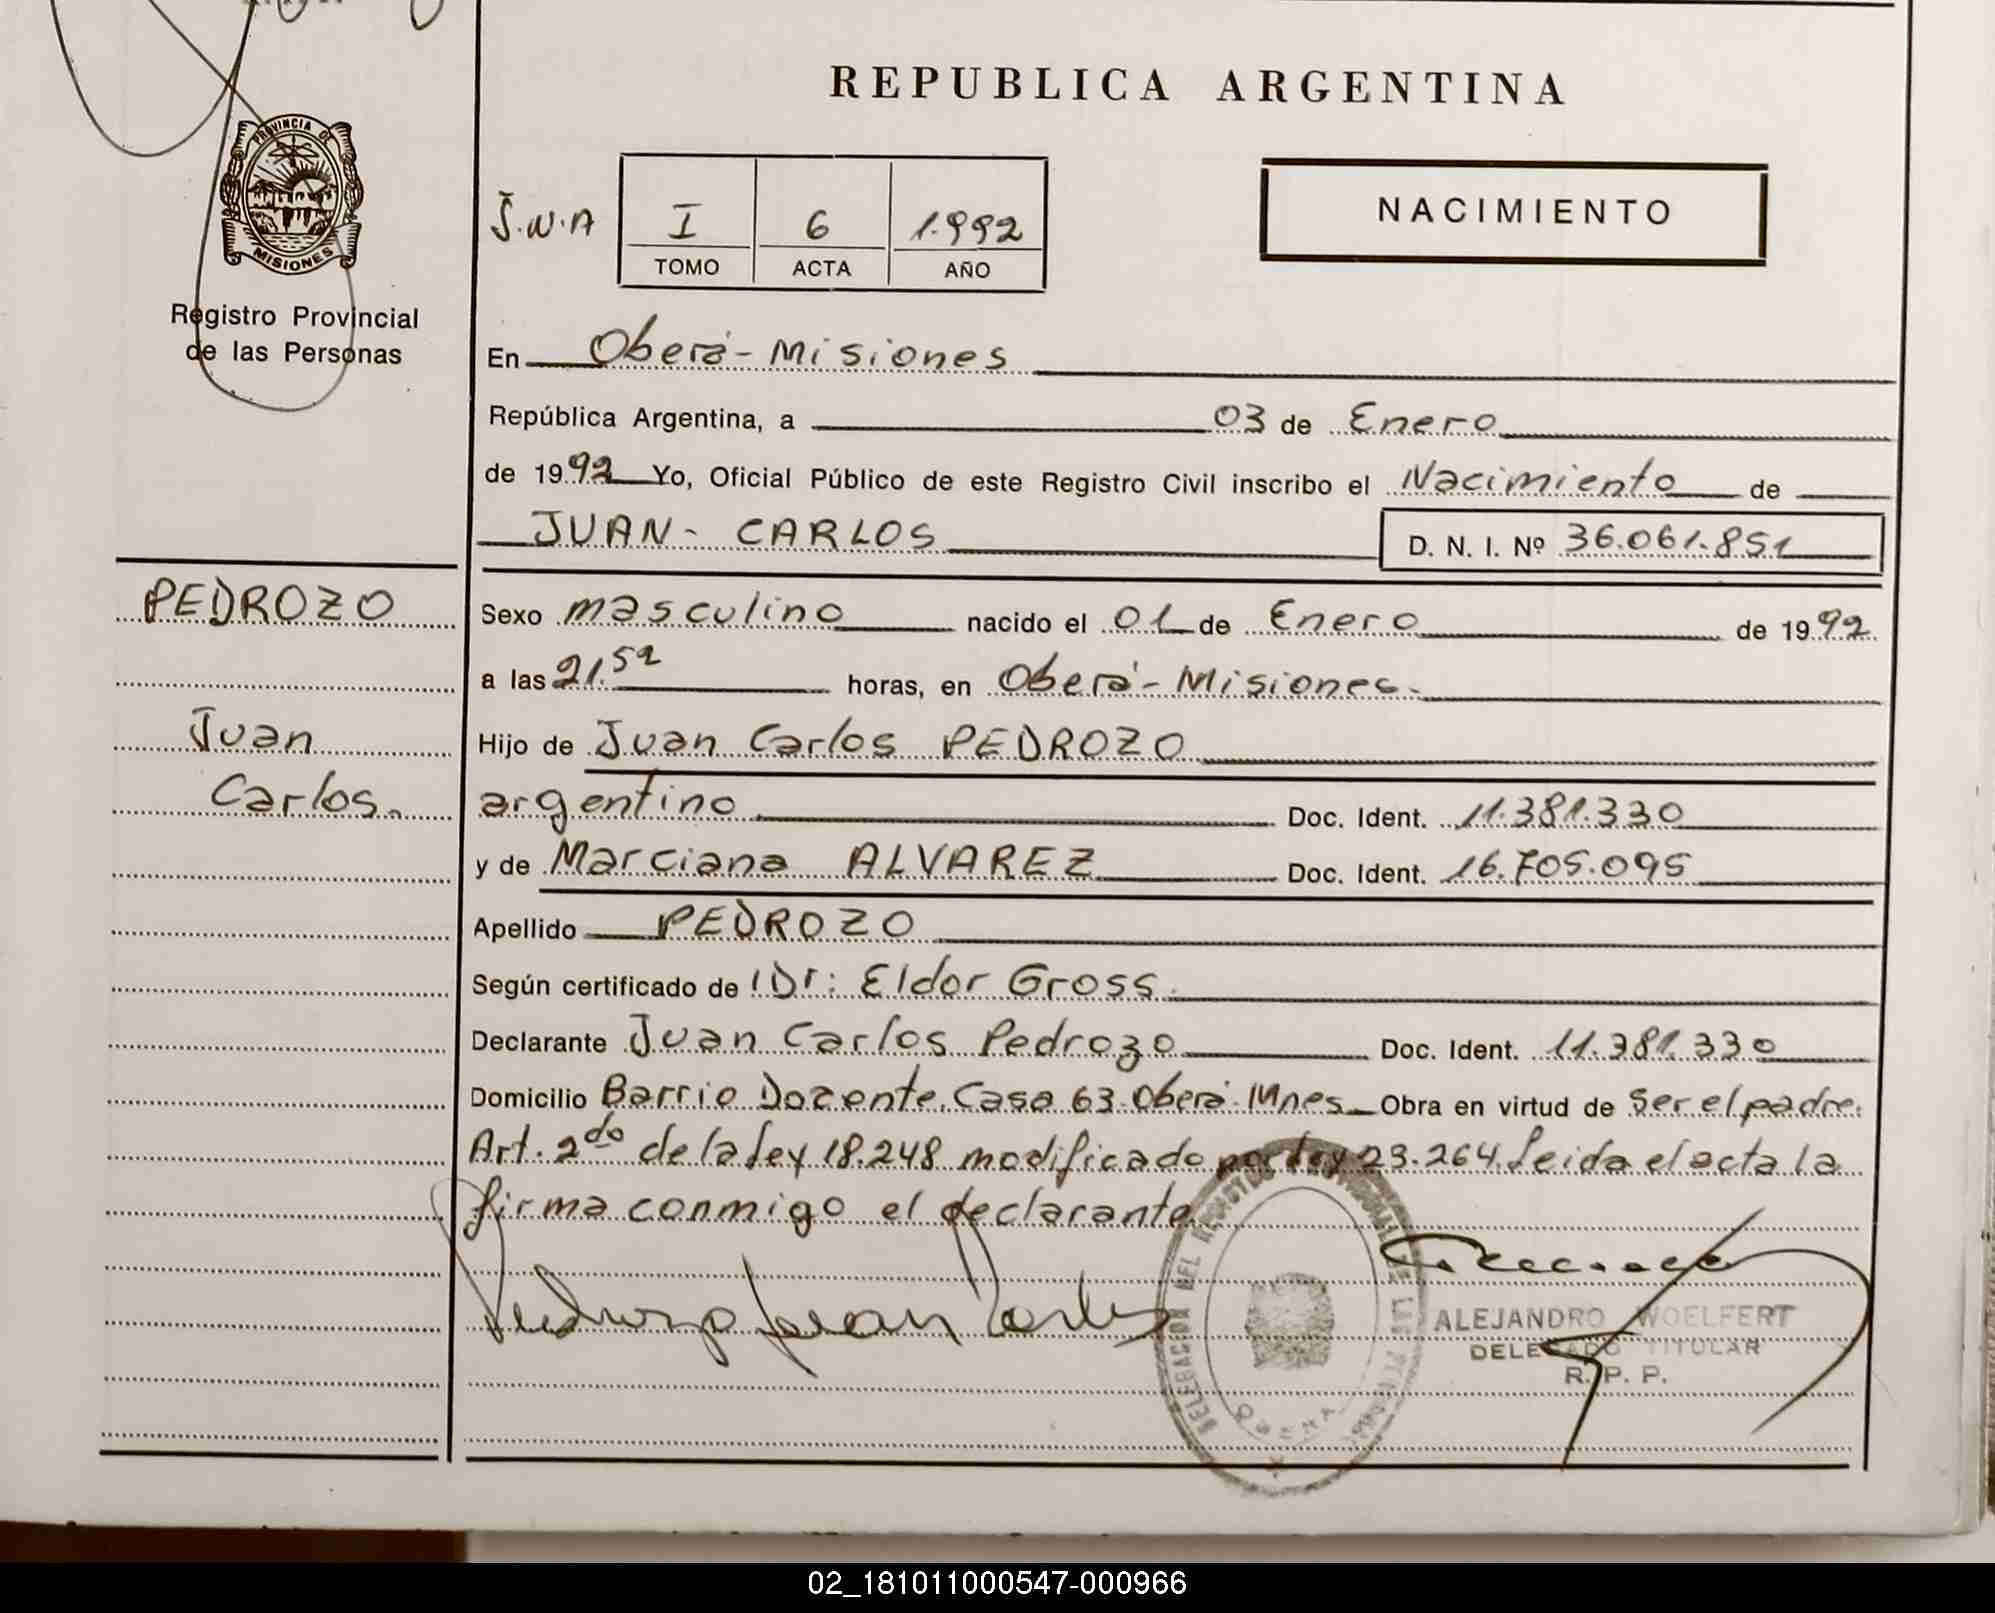 REPUBLICA ARGENTINA
PROVINCIA DE
MISIONES
Registro Provincial
de las Personas
J.N.A
I 6 1.992
TOMO ACTA AÑO
NACIMIENTO
En Oberá - Misiones
República Argentina, a 03 de Enero
de 1992 Yo, Oficial Público de este Registro Civil inscribo el Nacimiento de
JUAN - CARLOS D. N. I. Nº 36.061.851
PEDROZO
Juan
Carlos.
Sexo masculino nacido el 01 de Enero de 1992
a las 21.52 horas, en Oberá - Misiones.
Hijo de Juan Carlos PEDROZO
argentino Doc. Ident. 11.381.330
y de Marciana ALVAREZ Doc. Ident. 16.705.095
Apellido PEDROZO
Según certificado de Dr: Eldor Gross.
Declarante Juan Carlos Pedrozo Doc. Ident. 11.381.330
Domicilio Barrio Docente. Casa 63. Oberá - Mnes Obra en virtud de Ser el padre.
Art. 2do de la ley 18.248 modificado por ley 23.264. Leida el acta la
firma conmigo el declarante.
Pedrozo Juan Carlos
DELEGACION DEL REGISTRO PROVINCIAL DE LAS PERSONAS
ALEJANDRO WOELFERT
DELEGADO TITULAR
R. P. P.
02_181011000547-000966